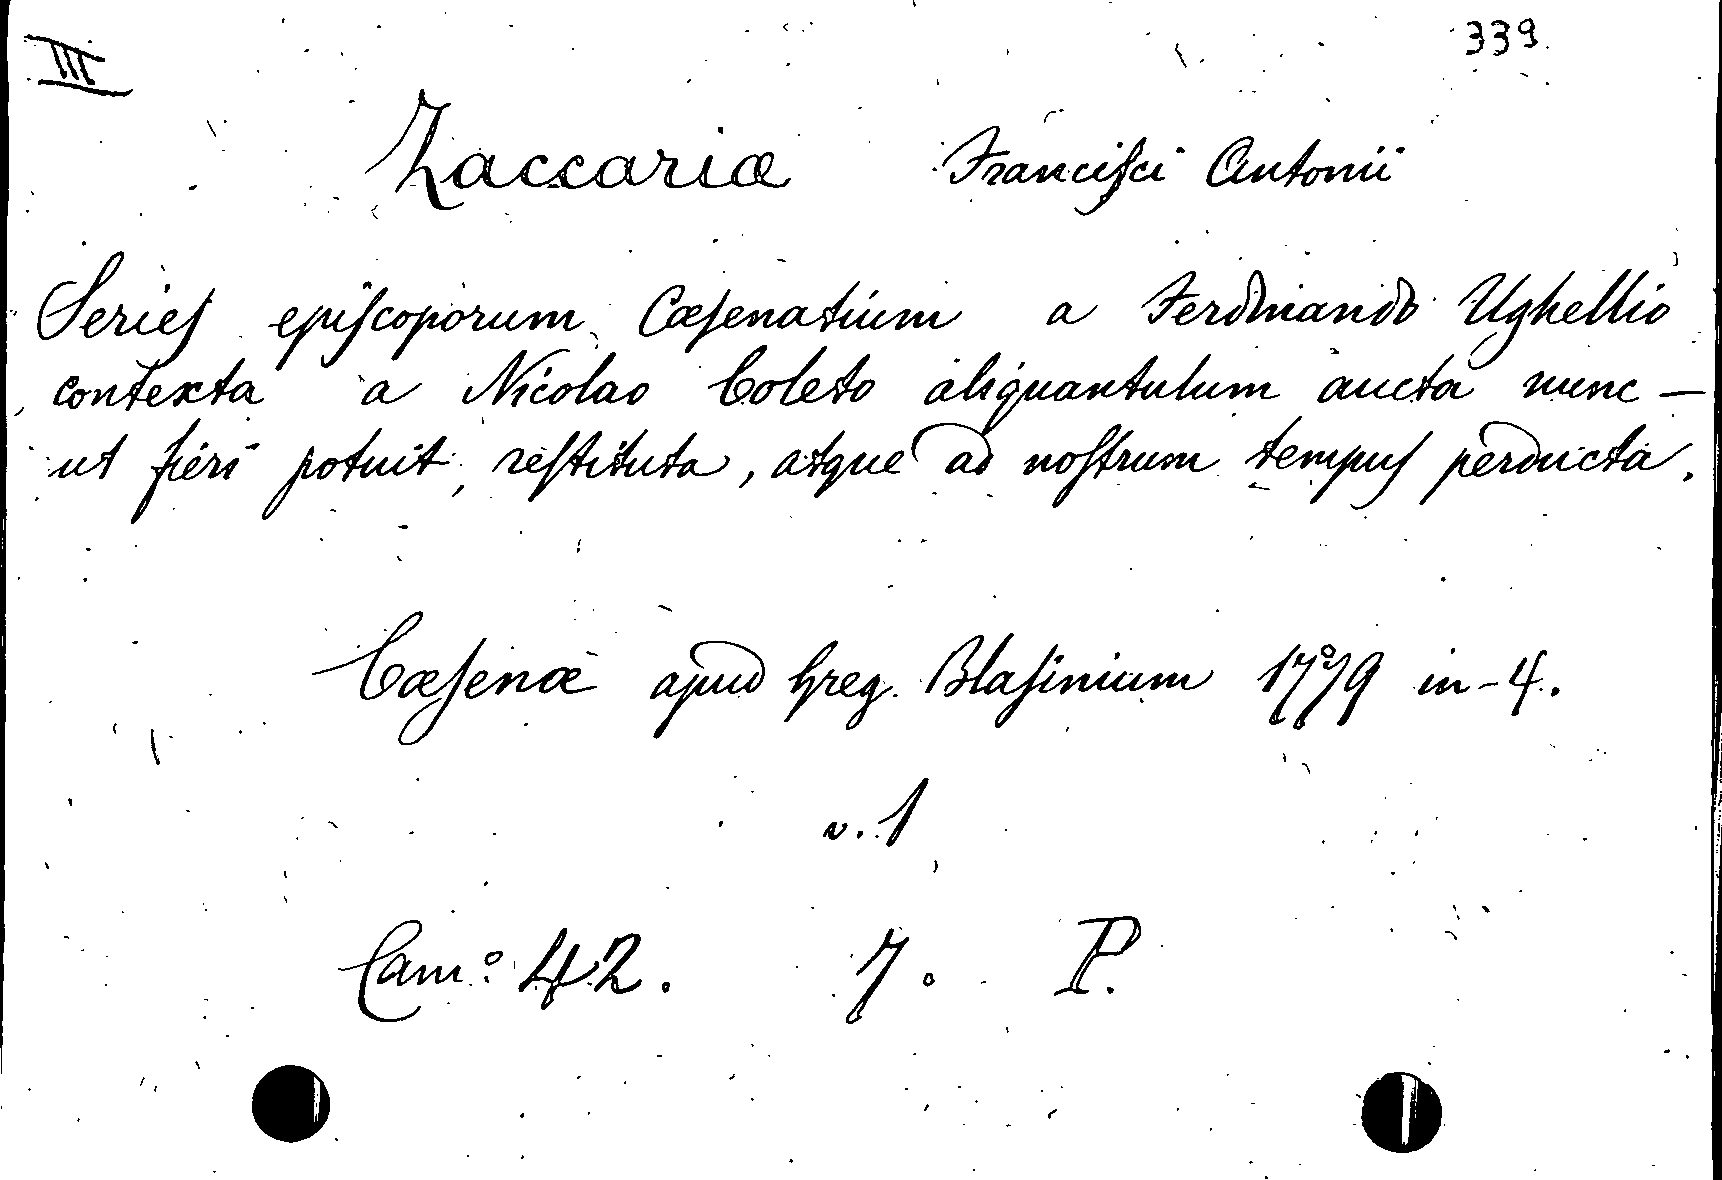 III
339
Zaccariæ Franciſci Antonii
Serieſ epiſcoporum Cæſenatium a Ferdinando Ughellio
contexta a Nicolao Coleto aliquantulum aucta nunc —
ut fieri potuit, reſtituta, atque ad noſtrum tempuſ perducta.
Cæſenæ apud Greg. Blaſinium 1779 in-4.
v. 1
Cam: 42. 7. P.